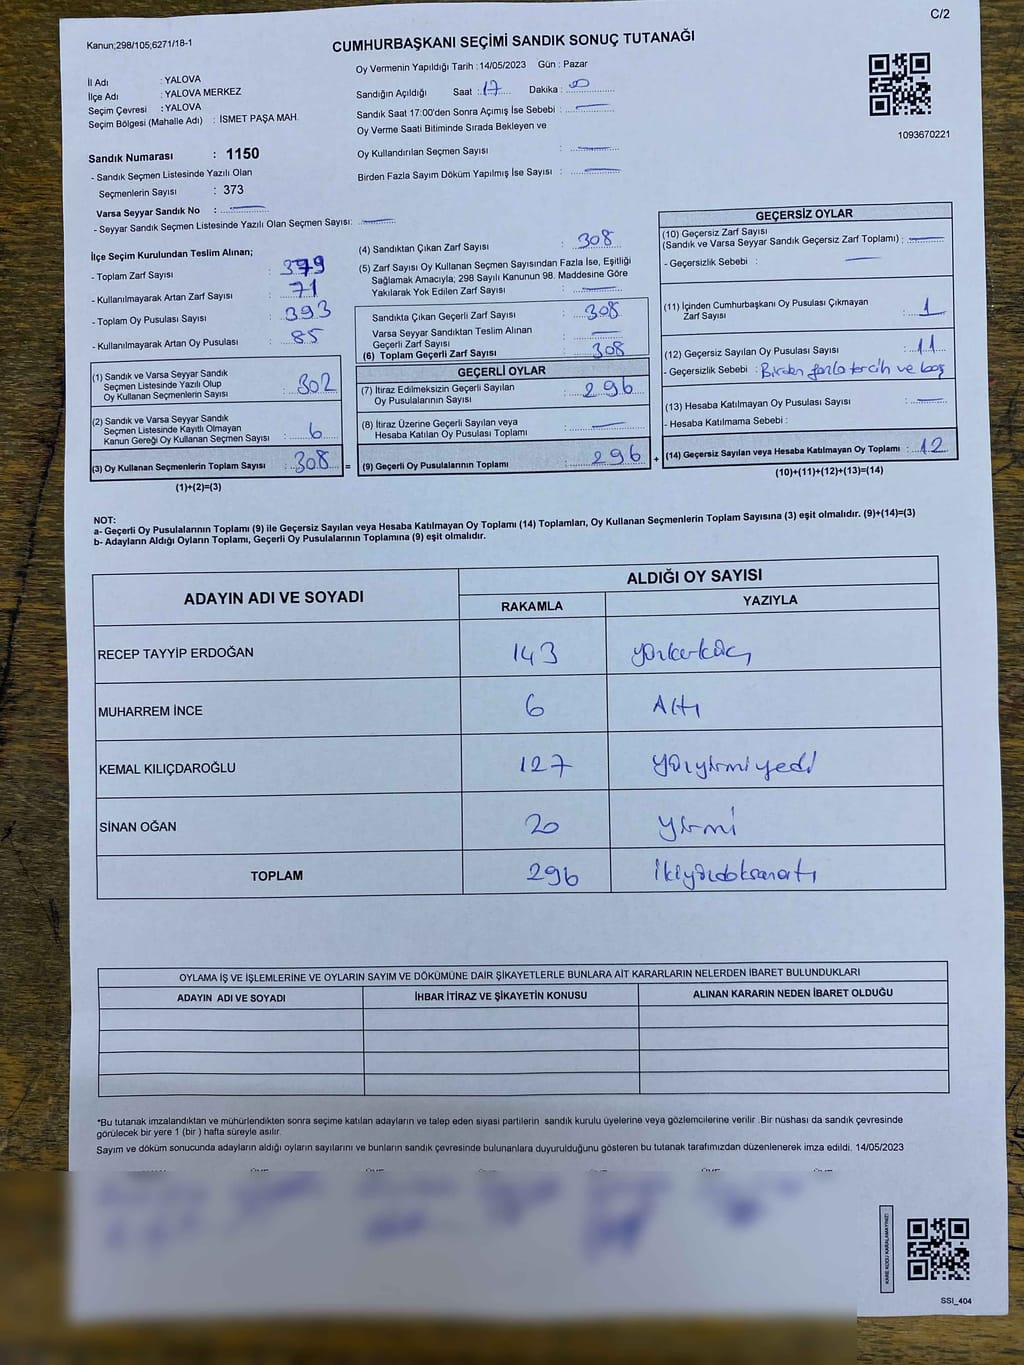 C/2
Kanun;298/105;6271/18-1
CUMHURBAŞKANI SEÇİMİ SANDIK SONUÇ TUTANAĞI
Oy Vermenin Yapıldığı Tarih : 14/05/2023 Gün : Pazar
İl Adı : YALOVA
İlçe Adı : YALOVA MERKEZ
Seçim Çevresi : YALOVA
Seçim Bölgesi (Mahalle Adı) : İSMET PAŞA MAH.
Sandığın Açıldığı Saat : 17 Dakika :
Sandık Saat 17:00'den Sonra Açımış İse Sebebi :
Oy Verme Saati Bitiminde Sırada Bekleyen ve
Oy Kullandırılan Seçmen Sayısı :
Birden Fazla Sayım Döküm Yapılmış İse Sayısı :
1093670221
Sandık Numarası : 1150
- Sandık Seçmen Listesinde Yazılı Olan
Seçmenlerin Sayısı : 373
Varsa Seyyar Sandık No :
- Seyyar Sandık Seçmen Listesinde Yazılı Olan Seçmen Sayısı:
İlçe Seçim Kurulundan Teslim Alınan;
- Toplam Zarf Sayısı : 379
- Kullanılmayarak Artan Zarf Sayısı : 71
- Toplam Oy Pusulası Sayısı : 393
- Kullanılmayarak Artan Oy Pusulası : 85
(1) Sandık ve Varsa Seyyar Sandık
Seçmen Listesinde Yazılı Olup
Oy Kullanan Seçmenlerin Sayısı : 302
(2) Sandık ve Varsa Seyyar Sandık
Seçmen Listesinde Kayıtlı Olmayan
Kanun Gereği Oy Kullanan Seçmen Sayısı : 6
(3) Oy Kullanan Seçmenlerin Toplam Sayısı : 308 =
(1)+(2)=(3)
(4) Sandıktan Çıkan Zarf Sayısı : 308
(5) Zarf Sayısı Oy Kullanan Seçmen Sayısından Fazla İse, Eşitliği
Sağlamak Amacıyla; 298 Sayılı Kanunun 98. Maddesine Göre
Yakılarak Yok Edilen Zarf Sayısı :
Sandıkta Çıkan Geçerli Zarf Sayısı : 308
Varsa Seyyar Sandıktan Teslim Alınan
Geçerli Zarf Sayısı :
(6) Toplam Geçerli Zarf Sayısı : 308
GEÇERLİ OYLAR
(7) İtiraz Edilmeksizin Geçerli Sayılan
Oy Pusulalarının Sayısı : 296
(8) İtiraz Üzerine Geçerli Sayılan veya
Hesaba Katılan Oy Pusulası Toplamı :
(9) Geçerli Oy Pusulalarının Toplamı : 296 +
GEÇERSİZ OYLAR
(10) Geçersiz Zarf Sayısı
(Sandık ve Varsa Seyyar Sandık Geçersiz Zarf Toplamı) :
- Geçersizlik Sebebi :
(11) İçinden Cumhurbaşkanı Oy Pusulası Çıkmayan
Zarf Sayısı : 1
(12) Geçersiz Sayılan Oy Pusulası Sayısı : 11
- Geçersizlik Sebebi : Birden fazla tercih ve boş
(13) Hesaba Katılmayan Oy Pusulası Sayısı :
- Hesaba Katılmama Sebebi :
(14) Geçersiz Sayılan veya Hesaba Katılmayan Oy Toplamı : 12
(10)+(11)+(12)+(13)=(14)
NOT:
a- Geçerli Oy Pusulalarının Toplamı (9) ile Geçersiz Sayılan veya Hesaba Katılmayan Oy Toplamı (14) Toplamları, Oy Kullanan Seçmenlerin Toplam Sayısına (3) eşit olmalıdır. (9)+(14)=(3)
b- Adayların Aldığı Oyların Toplamı, Geçerli Oy Pusulalarının Toplamına (9) eşit olmalıdır.
ADAYIN ADI VE SOYADI ALDIĞI OY SAYISI
RAKAMLA YAZIYLA
RECEP TAYYİP ERDOĞAN 143 yüzkırküç
MUHARREM İNCE 6 Altı
KEMAL KILIÇDAROĞLU 127 yüzyirmiyedi
SİNAN OĞAN 20 yirmi
TOPLAM 296 ikiyüzdoksanaltı
OYLAMA İŞ VE İŞLEMLERİNE VE OYLARIN SAYIM VE DÖKÜMÜNE DAİR ŞİKAYETLERLE BUNLARA AİT KARARLARIN NELERDEN İBARET BULUNDUKLARI
ADAYIN ADI VE SOYADI İHBAR İTİRAZ VE ŞİKAYETİN KONUSU ALINAN KARARIN NEDEN İBARET OLDUĞU
*Bu tutanak imzalandıktan ve mühürlendikten sonra seçime katılan adayların ve talep eden siyasi partilerin sandık kurulu üyelerine veya gözlemcilerine verilir .Bir nüshası da sandık çevresinde
görülecek bir yere 1 (bir ) hafta süreyle asılır.
Sayım ve döküm sonucunda adayların aldığı oyların sayılarını ve bunların sandık çevresinde bulunanlara duyurulduğunu gösteren bu tutanak tarafımızdan düzenlenerek imza edildi. 14/05/2023
KARE KODU KARALAMAYINIZ!
SSI_404